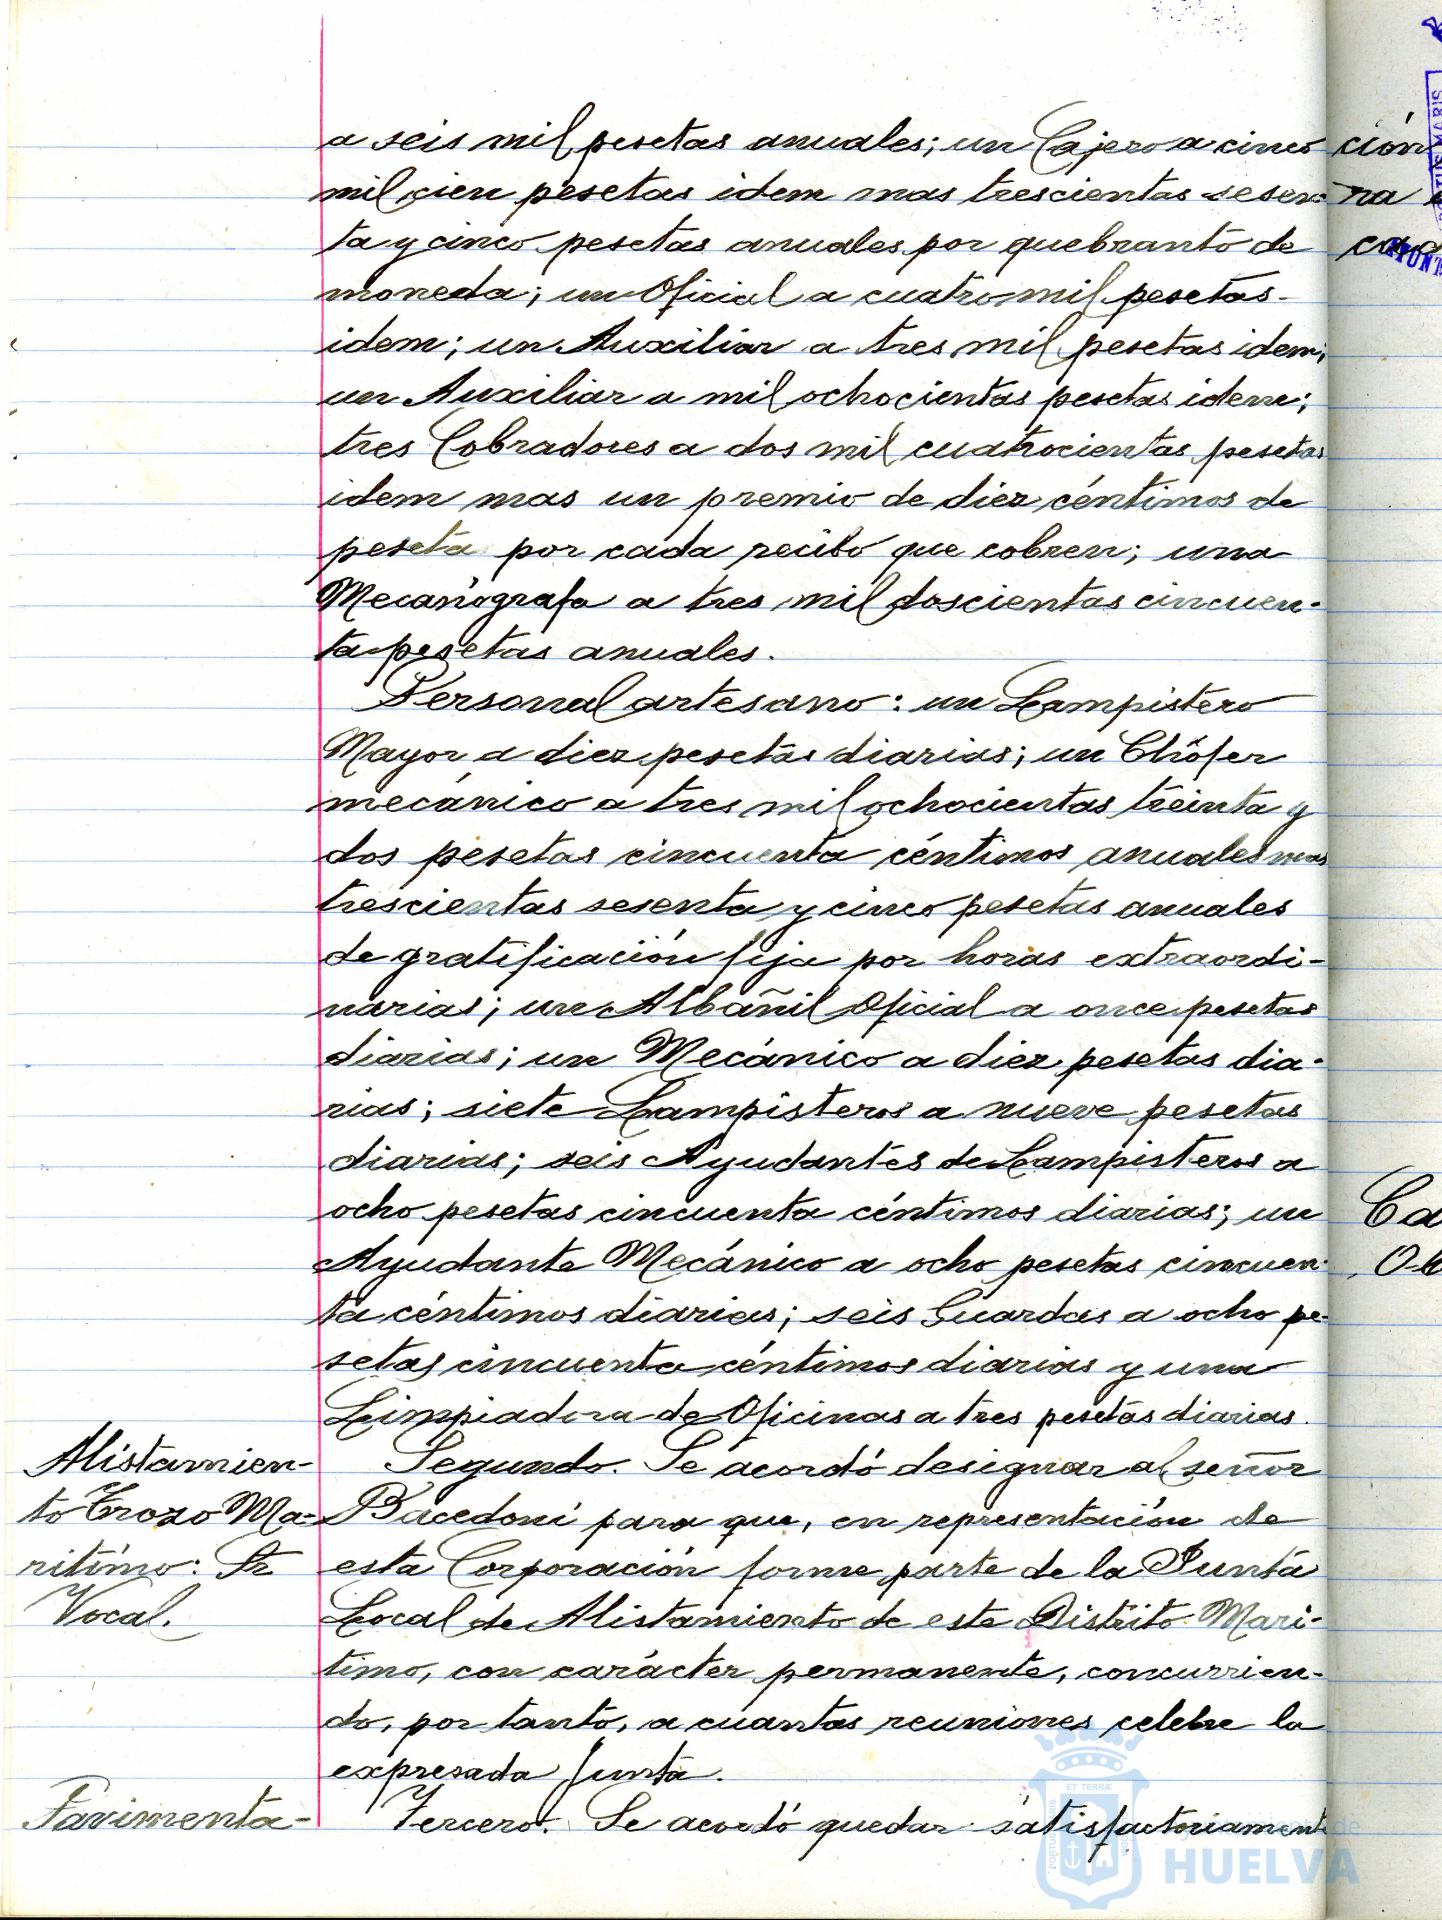 a seis mil pesetas anuales; un Cajero a cinco
mil cien pesetas idem mas trescientas sesen-
ta y cinco pesetas anuales por quebranto de
moneda; un Oficial a cuatro mil pesetas
idem; un Auxiliar a tres mil pesetas idem;
un Auxiliar a mil ochocientas pesetas idem;
tres Cobradores a dos mil cuatrocientas pesetas
idem mas un premio de diez céntimos de
peseta por cada recibo que cobren; una
Mecanógrafa a tres mil doscientas cincuen-
ta pesetas anuales.
Personal artesano: un Lampistero
Mayor a diez pesetas diarias; un Chófer
mecánico a tres mil ochocientas treinta y
dos pesetas cincuenta céntimos anuales mas
trescientas sesenta y cinco pesetas anuales
de gratificación fija por horas extraordi-
narias; un Albañil Oficial a once pesetas
diarias; un Mecánico a diez pesetas dia-
rias; siete Lampisteros a nueve pesetas
diarias; seis Ayudantes de Lampisteros a
ocho pesetas cincuenta céntimos diarias; un
Ayudante Mecánico a ocho pesetas cincuen-
ta céntimos diarias; seis Guardas a ocho pe-
setas cincuenta céntimos diarias y una
Limpiadora de Oficinas a tres pesetas diarias.
Alistamien-
to Trozo Ma-
rítimo: Sr
Vocal.
Segundo. Se acordó designar al señor
Bacedoni para que, en representación de
esta Corporación forme parte de la Junta
Local de Alistamiento de este Distrito Marí-
timo, con carácter permanente, concurrien-
do, por tanto, a cuantas reuniones celebre la
expresada Junta.
Pavimenta-
Tercero. Se acordó quedar satisfactoriamente
ción
na
Ca
Ob
PORTUS MARIS
ET TERRÆ
HUELVA